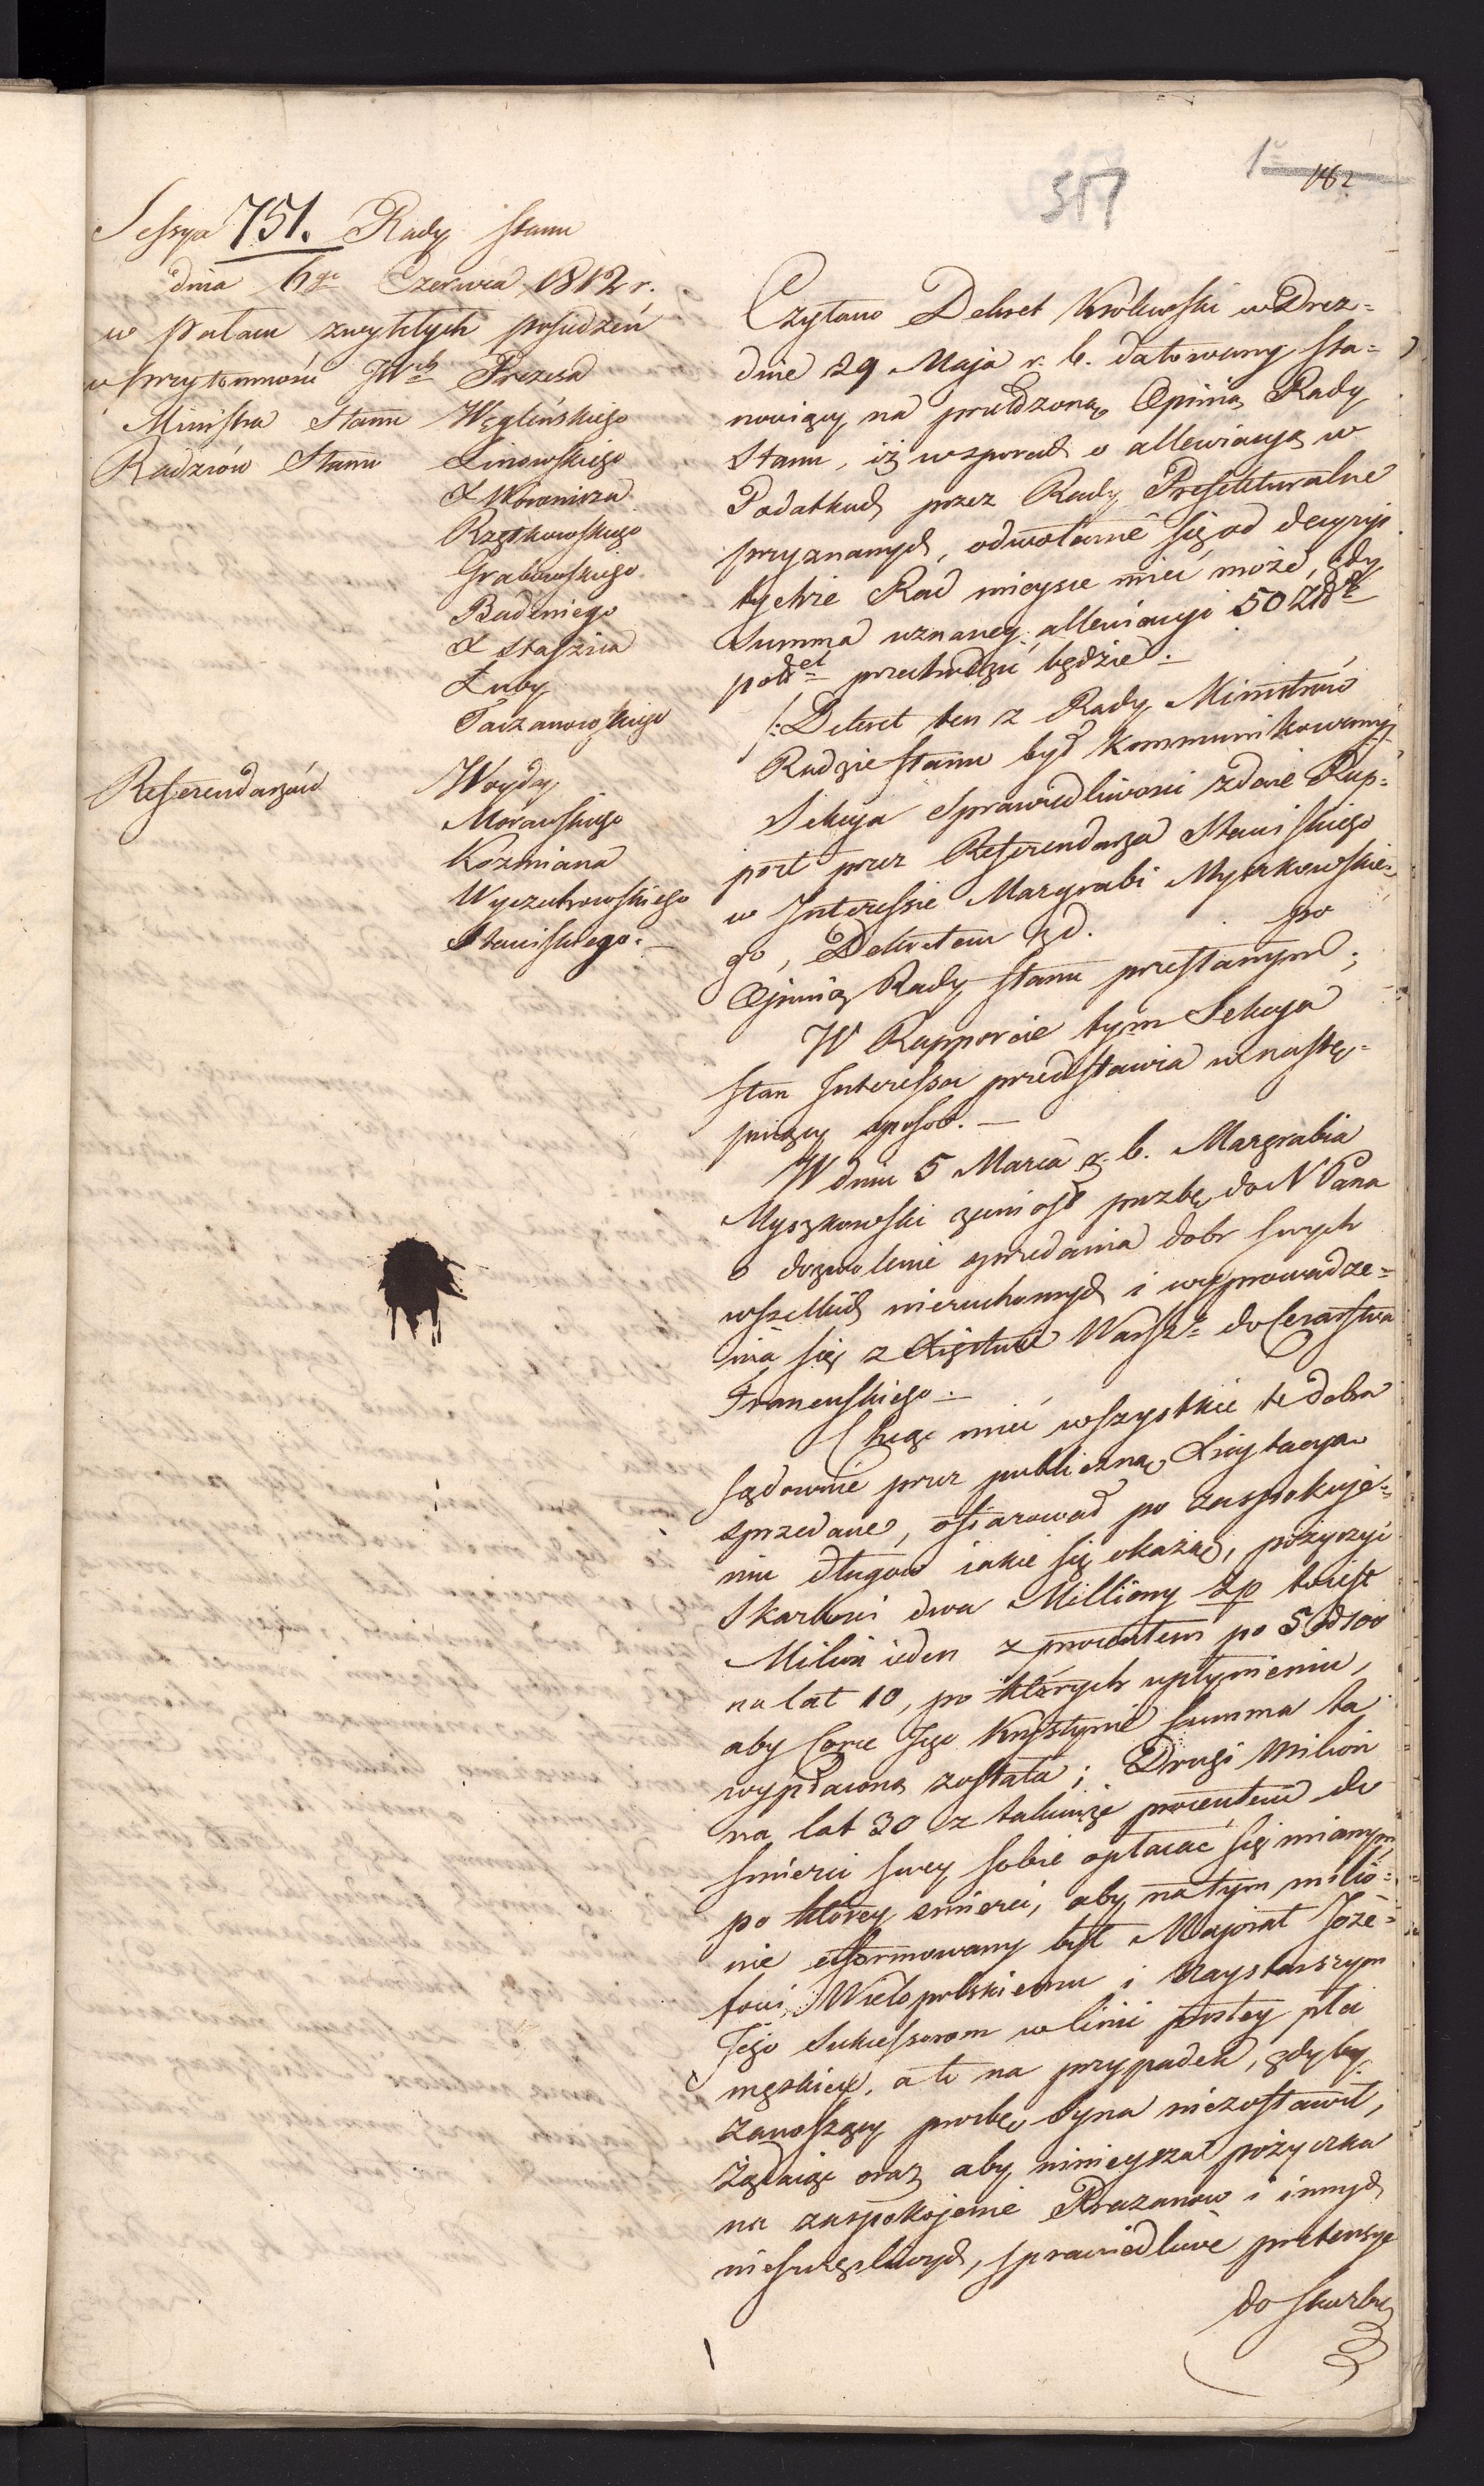 317
1
182
Sessya 751. Rady Stanu
dnia 6go Czerwca 1812 r.
w Pałacu zwykłych posiedzeń
w przytomności JWch Prezesa
Ministra Stanu Węgleńskiego
Radzców Stanu Linowskiego
X Woronicza
Rzętkowskiego
Grabowskiego
Badeniego
X Staszica
Łuby
Taczanowskiego
Referendarzów Woydy
Morawskiego
Koźmiana
Wyczechowskiego
Stawiskiego.
Czytano Dekret Królewski w Drez=
dnie 29 Maja r. b. datowany sta=
nowiący na przełożoną Opinią Rady
Stanu, iż w sporach o allewiacyą w
Podatkach przez Rady Prefekturalne
przyznanych, odwołanie się od decyzyi
tychże Rad mieysce mieć może, gdy
Summa uznaney allewiacyi 50 Złch
pol. przechodzić będzie.
/: Dekret ten z Rady Ministrów
Radzie Stanu był kommunikowany
Sekcya Sprawiedliwości zdaie Rap=
port przez Referendarza Stawiskiego
w Interessie Margrabi Myszkowskie=
go, Dekretem zd. po
Opinią Rady Stanu przesłanym;
W Rapporcie tym Sekcya
stan Interessu przedstawia w nastę=
puiący sposob.
W dniu 5 Marca r. b. Margrabia
Myszkowski zaniósł prozbę do N Pana
o dozwolenie sprzedania dobr swych
wszelkich nieruchomych i wyprowadze=
nia się z Xięstwa Warsz: do Cesarstwa
Francuskiego.
Chcąc mieć wszystkie te dobra
sądownie przez publiczną Licytacya
sprzedane, ofiarował po zaspokoje=
niu długów iakie się okażą, pożyczyć
Skarbowi dwa Milliony zp to iest
Milion ieden z procentem po 5 od 100
na lat 10, po których upłynieniu,
aby Corce Jego Krystynie summa ta
wypłacona została; Drugi Milion
na lat 30 z takimże procentem do
smierci swey sobie opłacać się mianym,
po którey smierci, aby na tym milio=
nie uformowany był Majorat Joze=
fowi Wielopolskiemu i Naystarszym
Jego Sukcessorom w linii prostey płci
męskiey, a to na przypadek, gdyby
zanoszący prozbę Syna niezostawił,
Żądaiąc oraz aby ninieysza pożyczka
na zaspokojenie Krazanow i innych
nieszczęśliwych, sprawiedliwe pretensye
do Skarbu